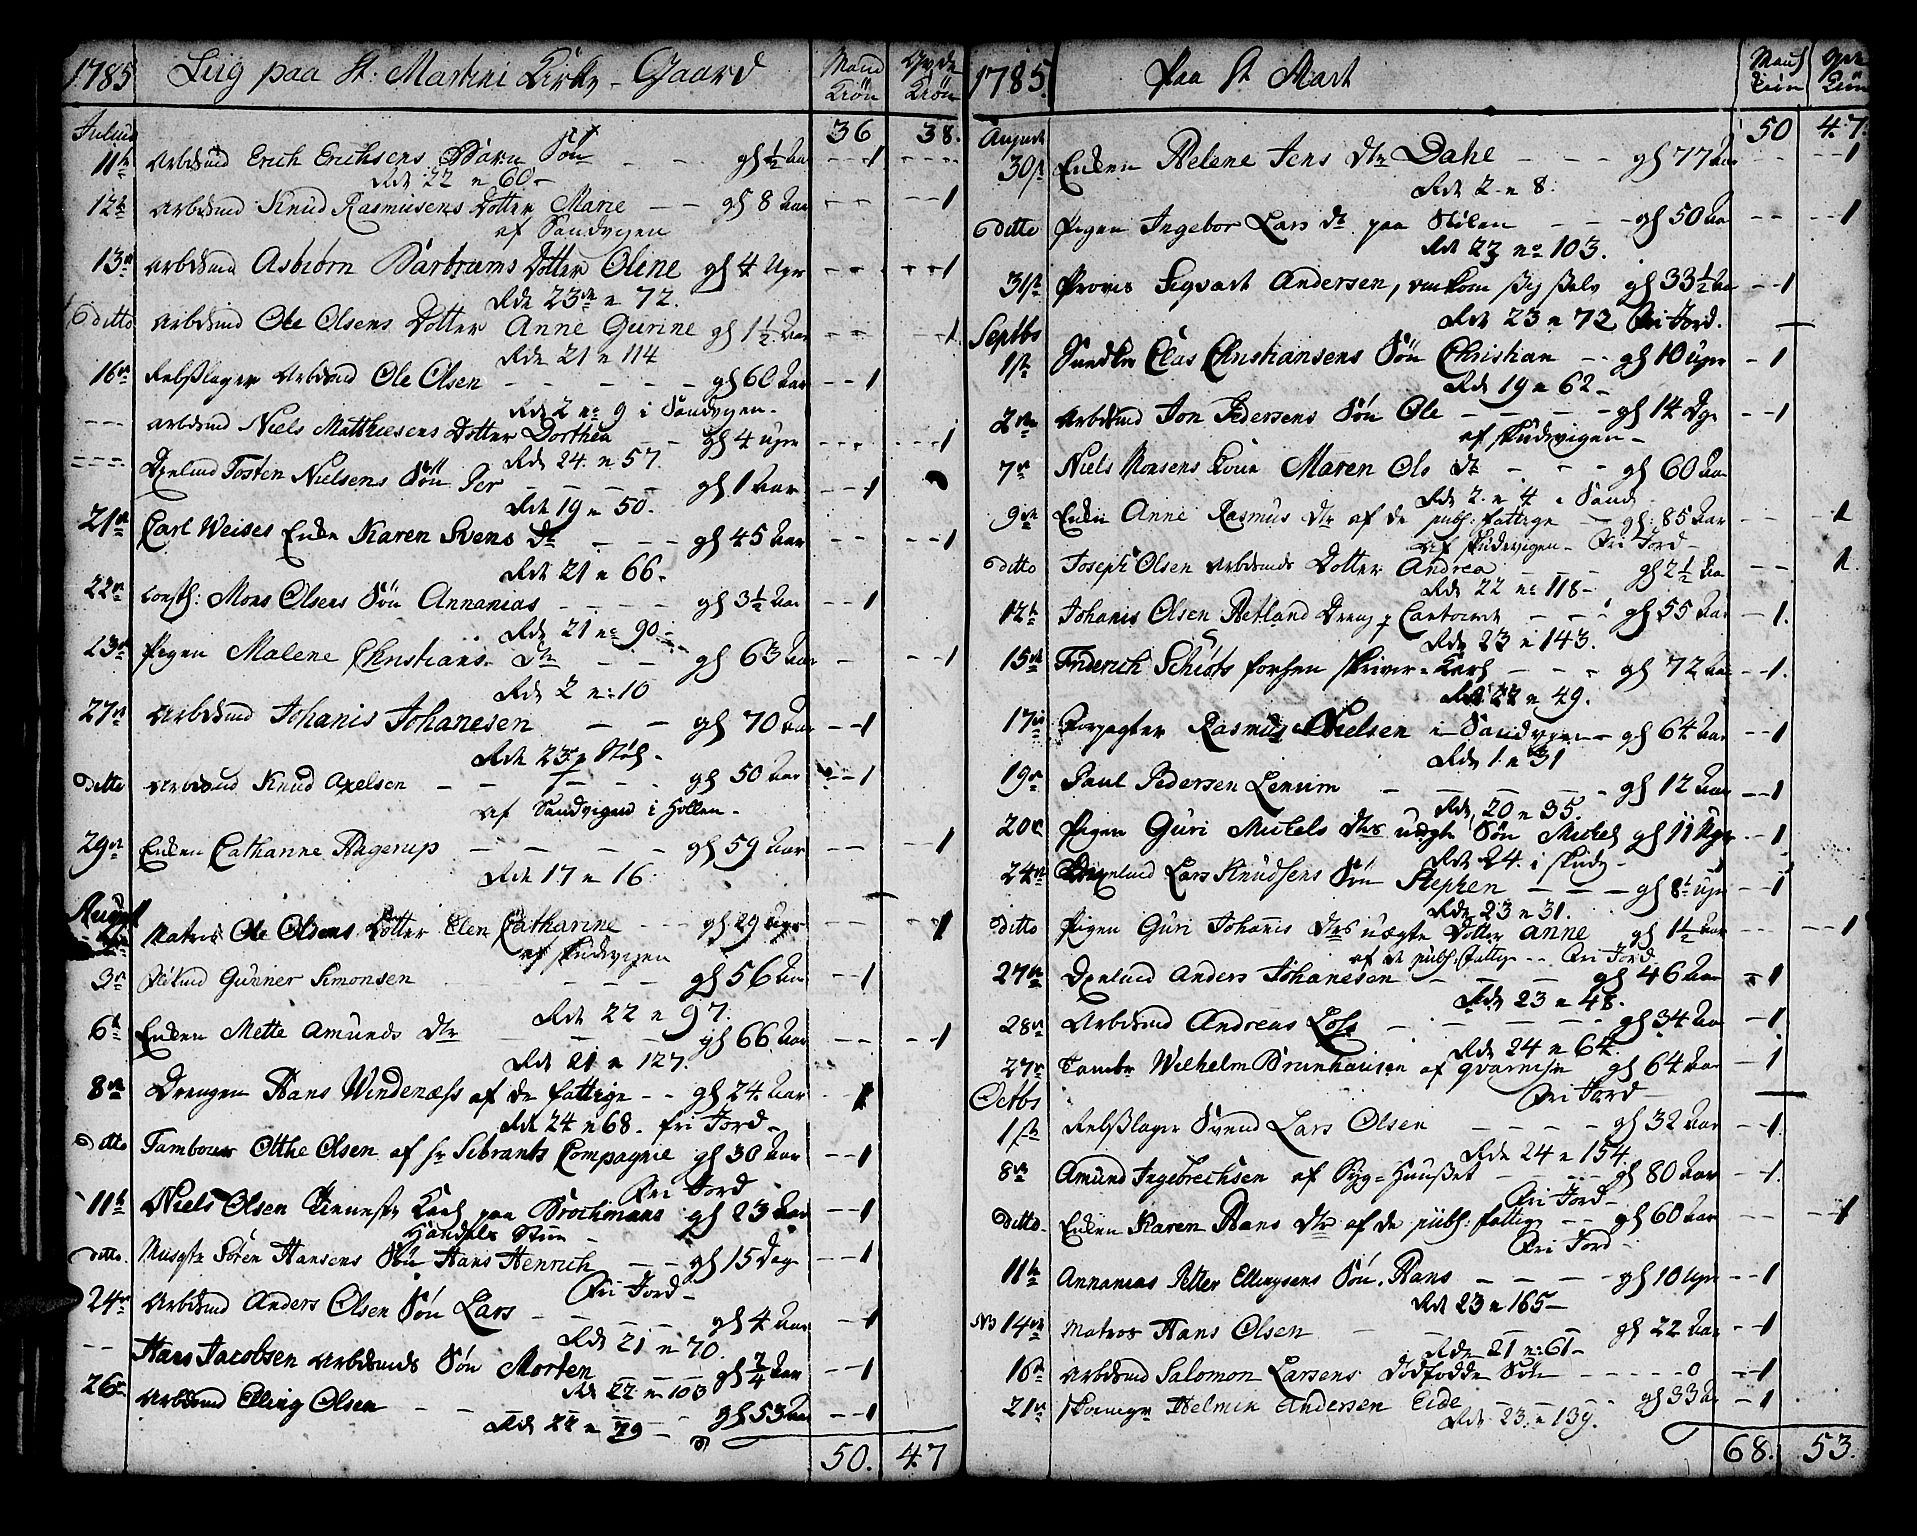 1785 Liig paa St: Martini Kirke-Gaard Mand Kiøn Qvinde Kiøn
Julius 36 38.
11te Arbdsmd Erich Erichsens Barn Søn - - gl ½ Aar - - 1
Rde 22 n 60-
12te Arbdsmd Knud Rasmusens Dotter Marie - - gl 8 Aar - - 1
af Sandvigen
13de Arbdsmd Asbiørn Barbrams Dotter Oline gl 4 Uger - - 1
Rde 23de n 72.
ditto Arbdsmd Ole Olsens Dotter Anne Gurine gl 1½ Aar - - 1
Rde 21 n 114
16de Rebslager Arbdsmd Ole Olsen - - - - gl 60 Aar - - 1
Rde 2 no 9 i Sandvigen-
- - - Arbdsmd Niels Matthiesens Dotter Dorthea - - gl 4 uger - - 1
Rde 24. n 57.
- - - Tosten Nielsens Søn Per - - - gl 1 Aar - - 1
Rde 19 n 50.
21de Carl Weises Enke Karen Svens Dr - - - gl 45 Aar - - 1
Rde 21 n 66.
22de Consth: Mons Olsens Søn Annanias - - - gl 3½ Aar - - 1
Rde 21 no 90-
23de Pigen Malene Christians Dtr - - gl 63 Aar - - 1
Rde 2 n:10
27de Arbdsmd Johanis Johanesen - - gl 70 Aar - - 1
Rde 23 p Støl-
ditto Arbdsmd Knud Axelsen - - - gl 50 Aar - - 1
af Sandvigen i Hollen-
29de Enken Catharine Hagerup - - - - gl 59 Aar - - 1
Rde 17 n 16
August
Matros Ole Olsens Dotter Elen Catharine - - gl 29 uger - - 1
af Skudevigen
3de Gunner Simonsen - - - gl 56 Aar - - 1
Rde 22 n 97.
6te Enken Mette Amunds Dtr - - - gl 66 Aar - - 1
Rde 21 n 127.
8de Drengen Hans Windenæss af de fattige - - gl 24 Aar - - 1
Rde 24 n 68. fri Jord-
ditto Tambour Otthe Olsen af hr Sebrants Compagnie gl 30 Aar - - 1
Fri Jord
11te Niels Olsen Tieneste Karl paa Brochmans gl 23 Aar - - 1
Handels Stue-
ditto. Musqtr Søren Hansens Søn Hans Henrich - - gl 15 Dag - - 1
Fri Jord-
24de Arbdsmd Anders Olsen Søn Lars - - - gl 4 Aar - - 1
Rde 21 n 70.
- - Hans Jacobsen Arbdsmds Søn Morten - - gl ¾ Aar - - 1
Rde 22 n 103
26de Arbdsmd Elling Olsen - - - gl 53 Aar - - 1
Rde 22 n 79
50. 47
1785. Paa St Mart Mand Kiøn Qvin Kiøn
August 50 47.
30te Enken Helene Jens Dtr Dahl - - - gl 77 Aar - - 1
Rde 2 n 8.
ditto Pigen Ingebor Lars Dr paa Stølen - - gl 50 Aar - - 1
Rde 23 no 103.
31te Provis Siqvart Andersen, omkom sig Selv gl 33½ Aar - - 1
Rde 23 n 72 Fri Jord.
Septbr
1ste Snedker Clas Christiansens Søn Christian - - gl 10 uger - 1
Rde 19 n 62-
2den Arbdsmd Jon Pedersens Søn Ole - - - gl 14 Dge - - 1
af Skudevigen-
7de Niels Monsens Kone Maren Ols Dr - - - gl 60 Aar
Rde 2. n 4 i Sand
9de Enken Anne Rasmus Dtr af de publ: fattige - gl: 85 Aar - - 1
af Skudevigen- Fri Jord-
ditto Joseph Olsen Arbdsmds Dotter Andrea - - - gl 2½ Aar - - 1.
Rde 22 no 118-
12te Johanis Olsen Hetland Dreng p Contoiret - - gl 55 Aar - - 1.
Rde 23 n 143.
15de Friderich Schiøts forhen Skriver-Karl - - - gl 72 Aar - - 1.
Rde 22 n 49.
17de Forpagter Rasmus Nielsen i Sandvigen- gl 64 Aar - - 1
Rde 1. n 31
19de Paul Pedersen Lenum - - - gl 12 Aar - - 1
Rde, 20 n 35.
20de Pigen Guri Mickels Dtrs uægte Søn Mickel gl 11 Uger - 1
Rde 24. i Skude-
24de Lars Knudsens Søn Stephen - - - gl 8½ uger - - 1
Rde 23 n 31.
ditto Pigen Guri Johanis Dtrs uægte Dotter Anne gl 1½ Aar - - 1
af de publ: fattige - - Fri Jord
27de Anders Johanesen - - - gl 46 Aar - - 1
Rde 23 n 48.
28de Arbdsmd Andreas Lofs - - - gl 34 Aar - 1
Rde 24 n 64.
27de Tambr Wilhelm Brunhausen af Guarnisn gl 64 Aar - 1
Fri Jord-
Octbr
1ste Rebslager Svend Lars Olsen - - - gl 32 Aar - - 1.
Rde 24 n 154
8de Amund Ingebrechsen af Syge-Hauset - - - gl 80 Aar - - 1.
Fri Jord-
Ditto. Enken Karen Hans Dtr af de publ: fattige - - gl 60 Aar - - 1
Fri Jord-
11te Annanias Petter Ellingsens Søn. Hans - - - gl 10 Uger - - 1
Rde 23 n 165-
NB 14de Matros Hans Olsen - - gl 22 Aar - - 1
Rde 21 no 61-
16de Arbdsmd Salomon Larsens Dødfødde Søn - - - - 0 - - 1
21de Helmik Andersen Eide - - gl 33 Aar - - 1
Rde 23. n 139.
68. 53.